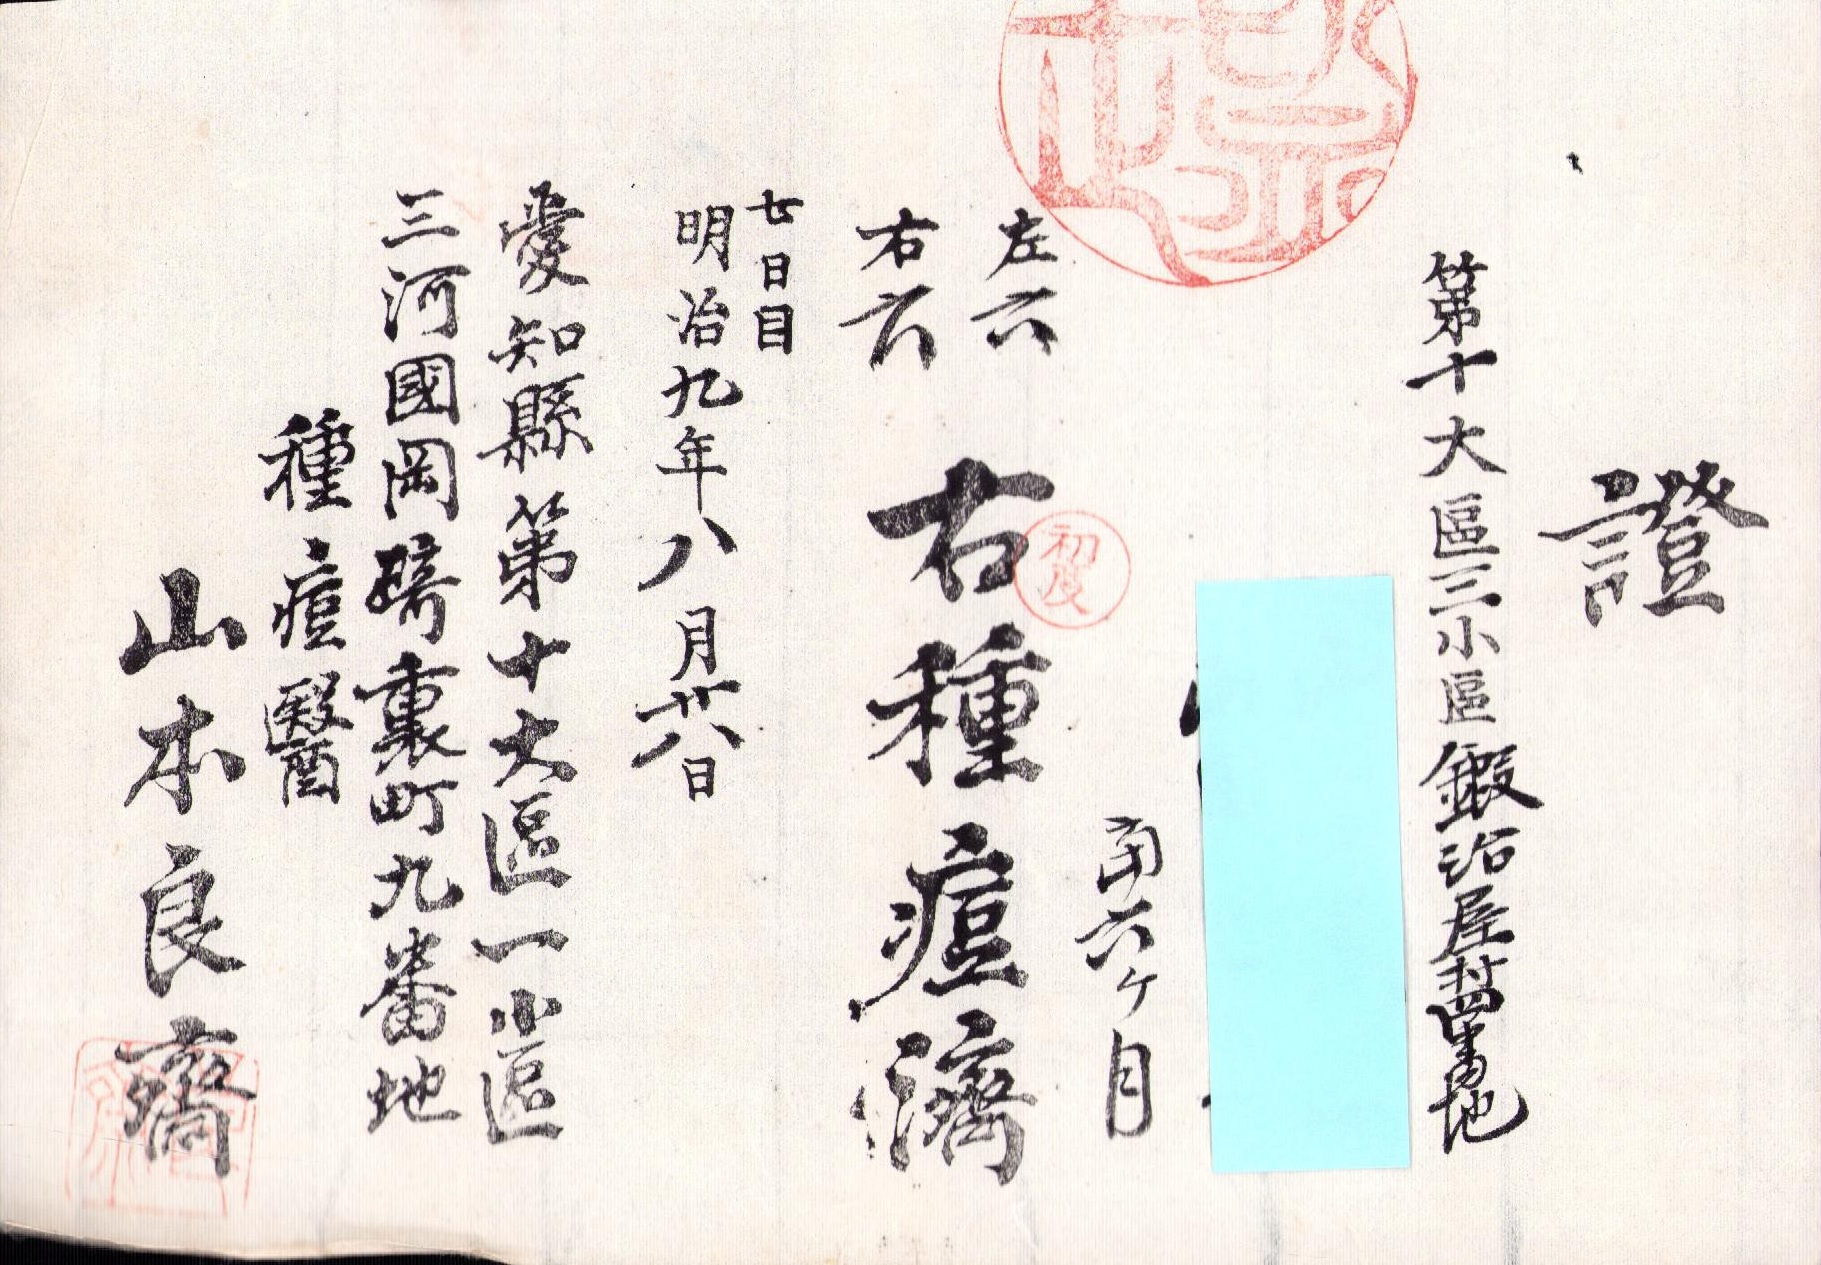 證
第十大區三小區鍛治屋村四番地
六ヶ月
初度
左六
右六
右種痘濟
七日目
明治九年八月廿八日
愛知縣第十大區一小區
三河國岡﨑裏町九番地
種痘醫
山本良齋